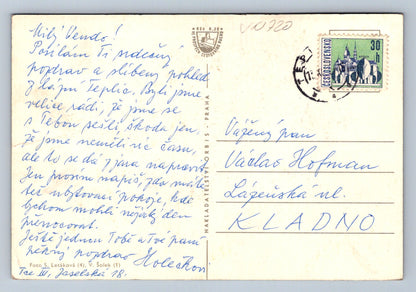 Milý Vendo!
Posílám Ti srdečný
pozdrav a slíbený pohled
z lázní Teplic. Byli jsme
velice rádi, že jsme se
s Tebou sešli, škoda jen,
že jsme neměli víc času,
ale to se dá z jara napravit.
Jen prosím napiš, zda máte
též ubytovací pokoje, kde
bychom mohli nějaký den
přenocovat.
Ještě jednou Tobě a Tvé paní
pěkný pozdrav Holečkovi
Tce III, Jaselská 18.
Foto S. (4), V. Šolek (1)
NAKLADATELSTVÍ ORBIS - PRAHA
ČESKOSLOVENSKO
30 h
Vážený pan
Václav Hofman
Lázeňská ul.
KLADNO